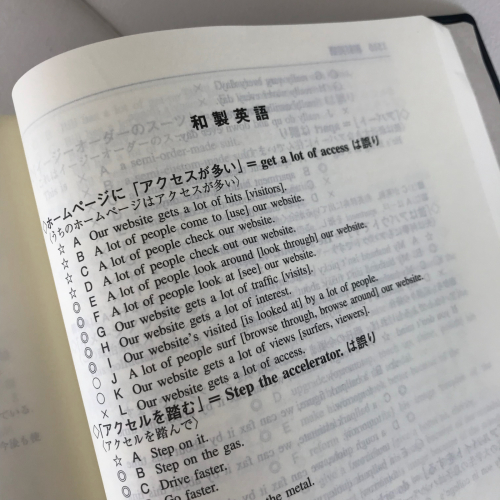 和製英語
◇ホームページに「アクセスが多い」= get a lot of access は誤り
(うちのホームページはアクセスが多い)
☆ A Our website gets a lot of hits [visitors].
☆ B A lot of people come to [use] our website.
☆ C A lot of people check our website.
☆ D A lot of people check out our website.
☆ E A lot of people look around [look through] our website.
◎ F A lot of people look at [see] our website.
◎ G Our website gets a lot of traffic [visits].
◎ H Our website gets a lot of interest.
◎ Our website's visited [is looked at] by a lot of people.
○ J A lot of people surf [browse through, browse around] our website.
○ K Our website gets a lot of views [surfers, viewers].
× L Our website gets a lot of access.
◇「アクセルを踏む」= Step the accelerator. は誤り
(アクセルを踏んで)
☆ A Step on it.
◎ B Step on the gas.
◎ C Drive faster.
Go faster.
the metal.